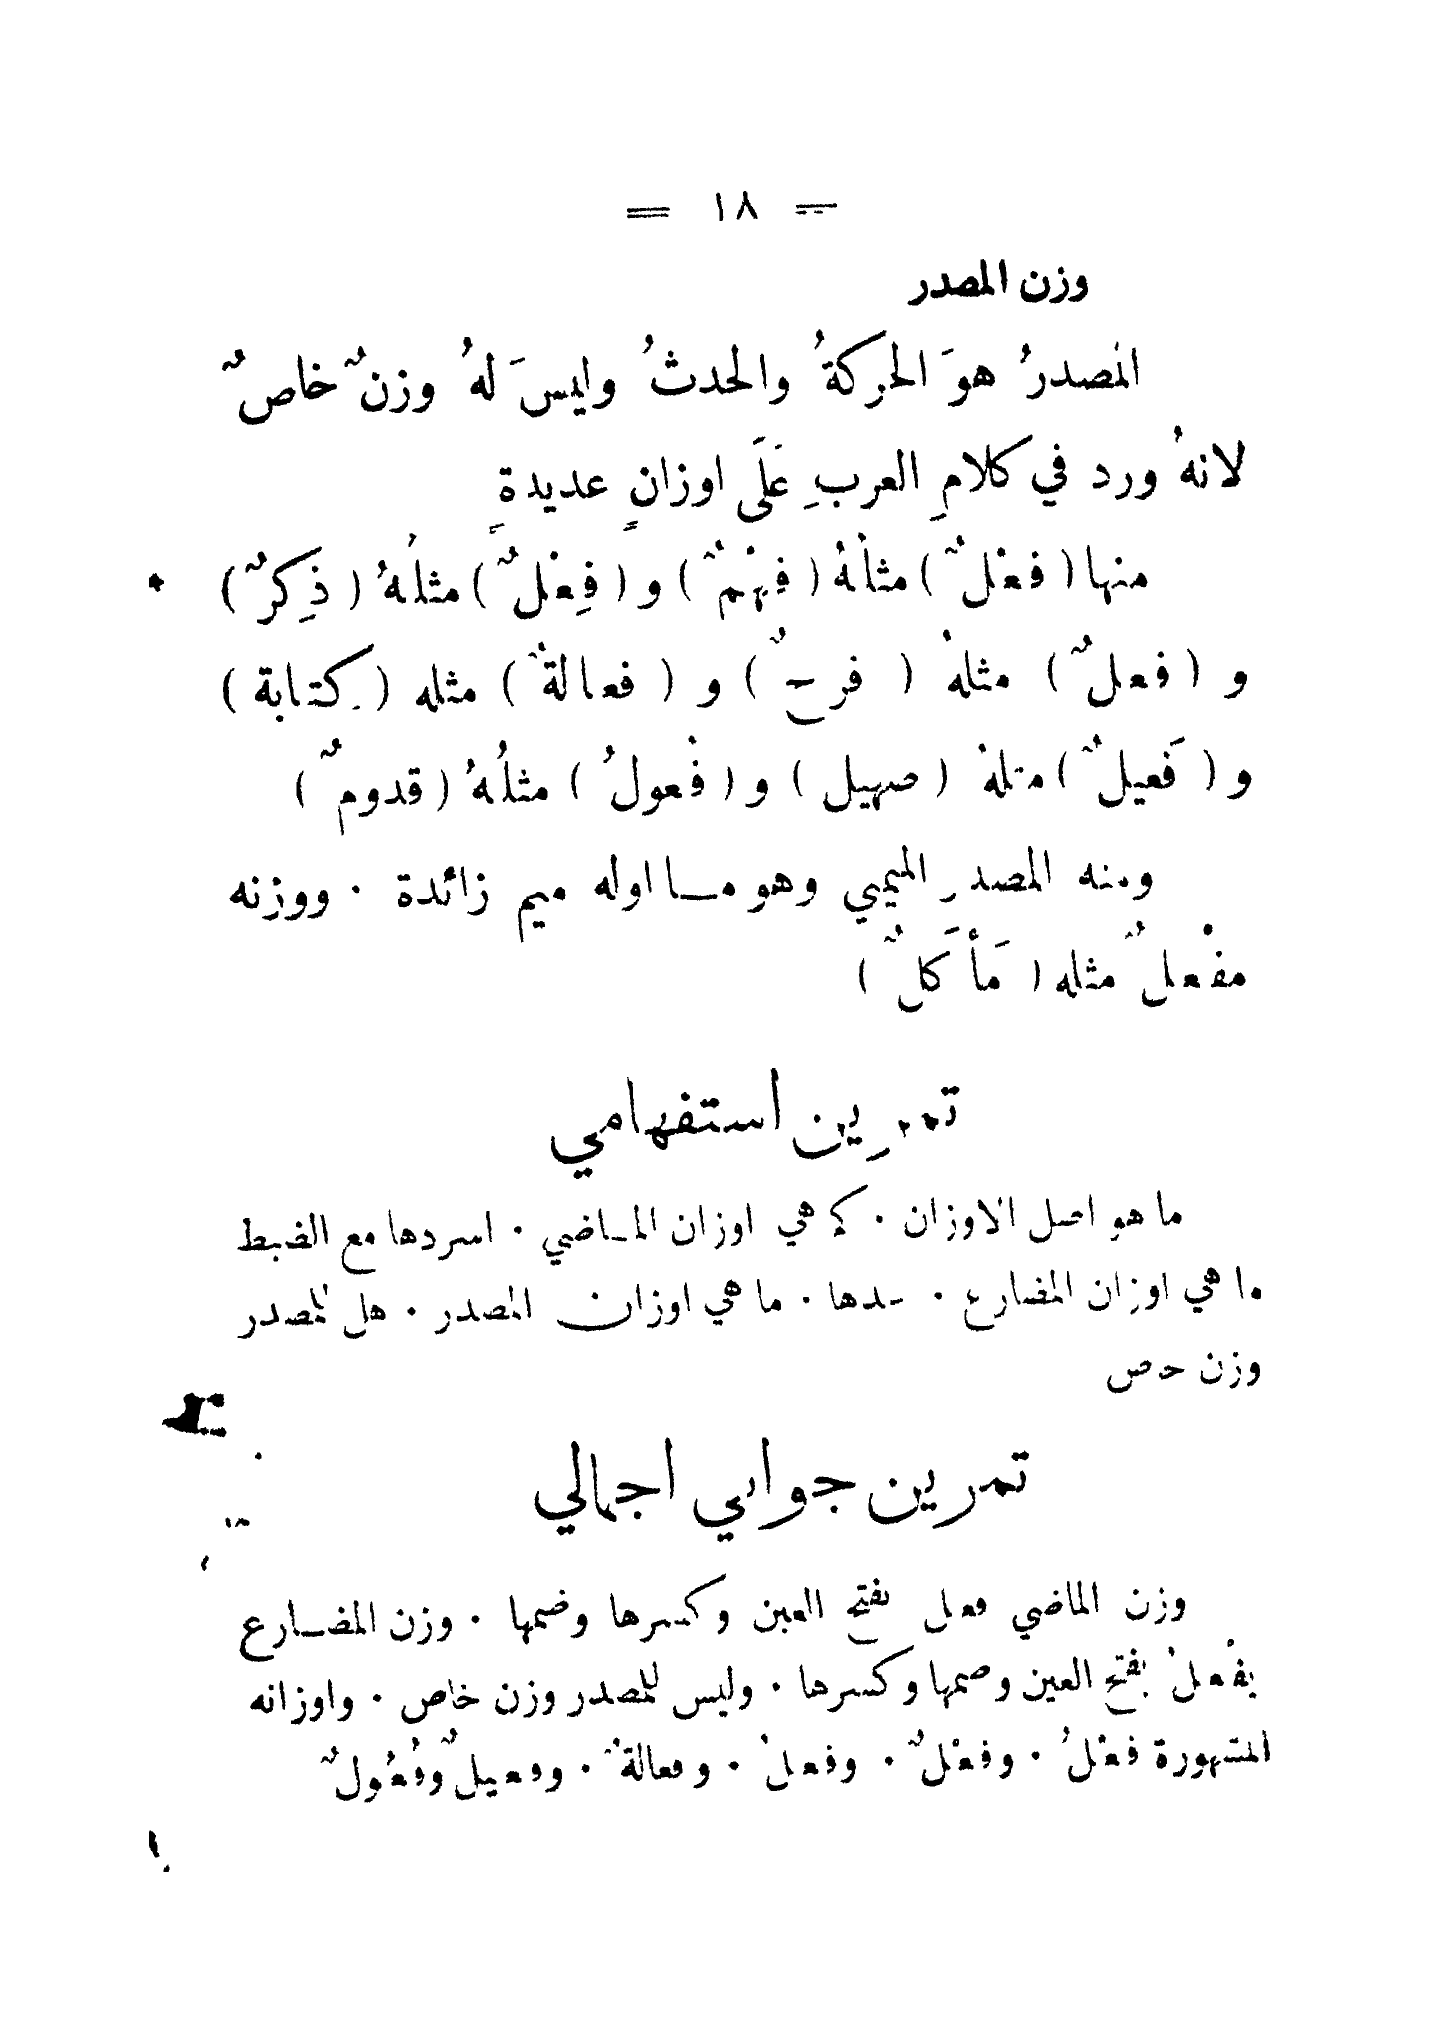 = ١٨ =
وزن المصدر
المصدرُ هوَ الحركةُ والحدثُ وليسَ لهُ وزنٌ خاصٌ
لانهُ ورد في كلامِ العربِ عَلَى اوزانٍ عديدةٍ
منها ( فعْلٌ ) مثالهُ ( فِهْمٌ ) و ( فِعْلٌ ) مثلُهُ ( ذِكرٌ )
و ( فعلٌ ) مثلهُ ( فرحٌ ) و ( فعالةٌ ) مثله ( كتابة )
و ( فَعيلٌ ) مثلهُ ( صهيل ) و ( فُعولُ ) مثلُهُ ( قدومٌ )
ومنه المصدر الميمي وهو ما اوله ميم زائدة ٠ ووزنه
مفْعلٌ مثله ( مَأكَلٌ )
تمرين استفهامي
ما هو اصل الاوزان ٠ كم هي اوزان الماضي ٠ اسردها مع الضبط
ما هي اوزان المضارع ٠ عدها ٠ ما هي اوزان المصدر ٠ هل للمصدر
وزن خاص
تمرين جوابي اجمالي
وزن الماضي فعل بفتح العين وكسرها وضمها ٠ وزن المضارع
يفْعلُ بفتح العين وضمها وكسرها ٠ وليس للمصدر وزن خاص ٠ واوزانه
المشهورة فعْلُ ٠ وفعْلٌ ٠ وفعلُ ٠ وفعالةٌ ٠ وفعيلٌ وفُعُولٌ